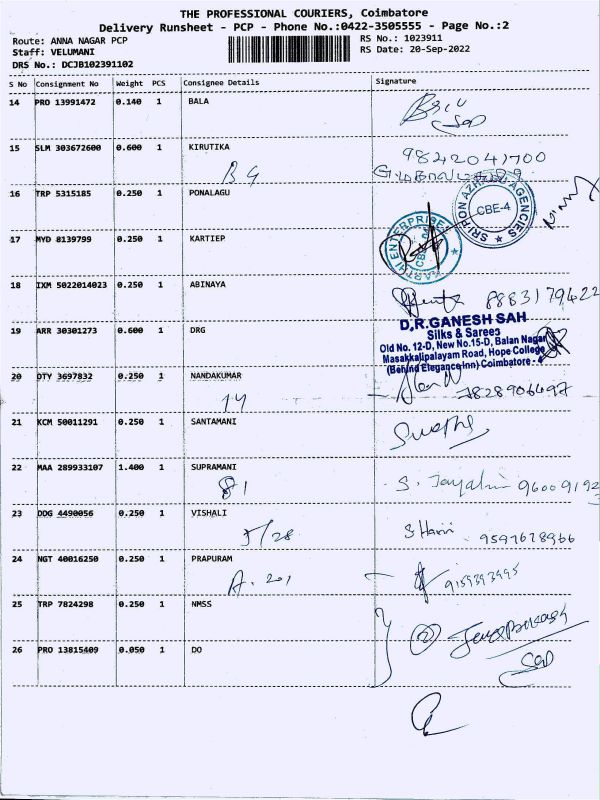 THE PROFESSIONAL COURIERS, Coimbatore
Delivery Runsheet - PCP - Phone No.:0422-3505555 - Page No.:2
Route: ANNA NAGAR PCP
RS No.: 1023911
Staff: VELUMANI
RS Date: 20-Sep-2022
DRS No.: DCJB102391102
S No Consignment No Weight PCS Consignee Details Signature
14 PRO 13991472 0.140 1 BALA
15 SLM 303672600 0.600 1 KIRUTIKA 9842041700
B 9
16 TRP 5315185 0.250 1 PONALAGU
AGENCIES
CBE-4
17 MYD 8139799 0.250 1 KARTIEP
ENTERPRISES
18 IXM 5022014023 0.250 1 ABINAYA 8883179422
19 ARR 30301273 0.600 1 DRG
D.R.GANESH SAH
Silks & Sarees
Old No. 12-D, New No.15-D, Balan Nagar
Masakkalipalayam Road, Hope College
(Behind Elegance Inn) Coimbatore - 4
20 DTY 3697832 0.250 1 NANDAKUMAR 7828906497
14
21 KCM 50011291 0.250 1 SANTAMANI
22 MAA 289933107 1.400 1 SUPRAMANI
81
S. 96009192
23 DDG 4490056 0.250 1 VISHALI
5/28
S Harii 9597678966
24 NGT 40016250 0.250 1 PRAPURAM
A. 201
9159393995
25 TRP 7824298 0.250 1 NMSS
2 Jayaprakash
26 PRO 13815409 0.050 1 DO